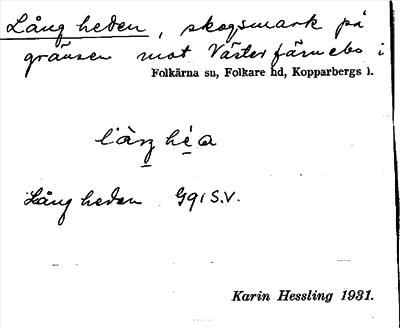 Långheden, skogsmark på
gränsen mot Västerfärnebo i
Folkärna sn, Folkare hd, Kopparbergs l.
Långheden G91 S.V.
Karin Hessling 1931.